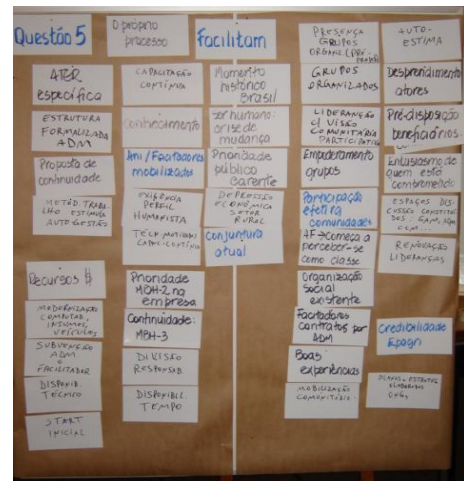 Questão 5
O próprio
processo
Facilitam
ATER
específica
ESTRUTURA
FORMALIZADA
ADM
Proposta de
continuidade
METOD. TRABA-
LHO ESTIMULA
AUTOGESTÃO
Recursos $
MODERNIZAÇÃO
COMPUTAD.
INSUMOS,
VEÍCULOS
SUBVENÇÃO
ADM
FACILITADOR
DISPONIB.
TÉCNICO
START
INICIAL
CAPACITAÇÃO
CONTÍNUA
conhecimento
Ani/Facitadores
mobilizados
EXIGÊNCIA
PERFIL
HUMANISTA
TÉCN. MOTIVADOS
Prioridade
MBH-2 na
empresa
Continuidade:
MBH-3
DIVISÃO
RESPONSAB.
DISPONIBIL.
TEMPO
Momento
histórico
Brasil
ser humano:
crise de
mudança
Prioridade
público
carente
DEPRESSÃO
ECONÔMICA
SETOR
RURAL
conjuntura
atual
PRESENÇA
GRUPOS
ORGANIZ.
GRUPOS
ORGANIZADOS
LIDERANÇAS
C/ VISÃO
COMUNITÁRIA
PARTICIPATIVA
Empoderamento
grupos
Participação
efetiva
comunidades
AF → começa a
perceber-se
como classe
Organização
social
existente
Facitadores
contratos por
ADM
Boas
experiências
MOBILIZAÇÃO
COMUNITÁRIA
AUTO-
ESTIMA
Desprendimento
atores
Pré-disposição
beneficiários
Entusiasmo de
quem está
comprometido
ESPAÇOS DIS-
CUSSÃO
RENOVAÇÃO
LIDERANÇAS
credibilidade
Epagri
PLANOS
ELABORADOS